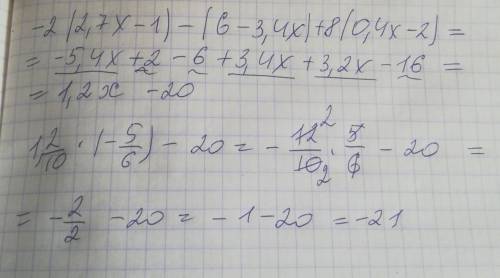 -2(2,7x-1)-(6-3,4x)+8(0,4x-2)=
= -5,4x+2-6+3,4x+3,2x-16 =
= 1,2x -20
1 2/10 · (-5/6) - 20 = - 12²/10₂ · 5/6 - 20 =
= -2/2 -20 = -1-20 = -21